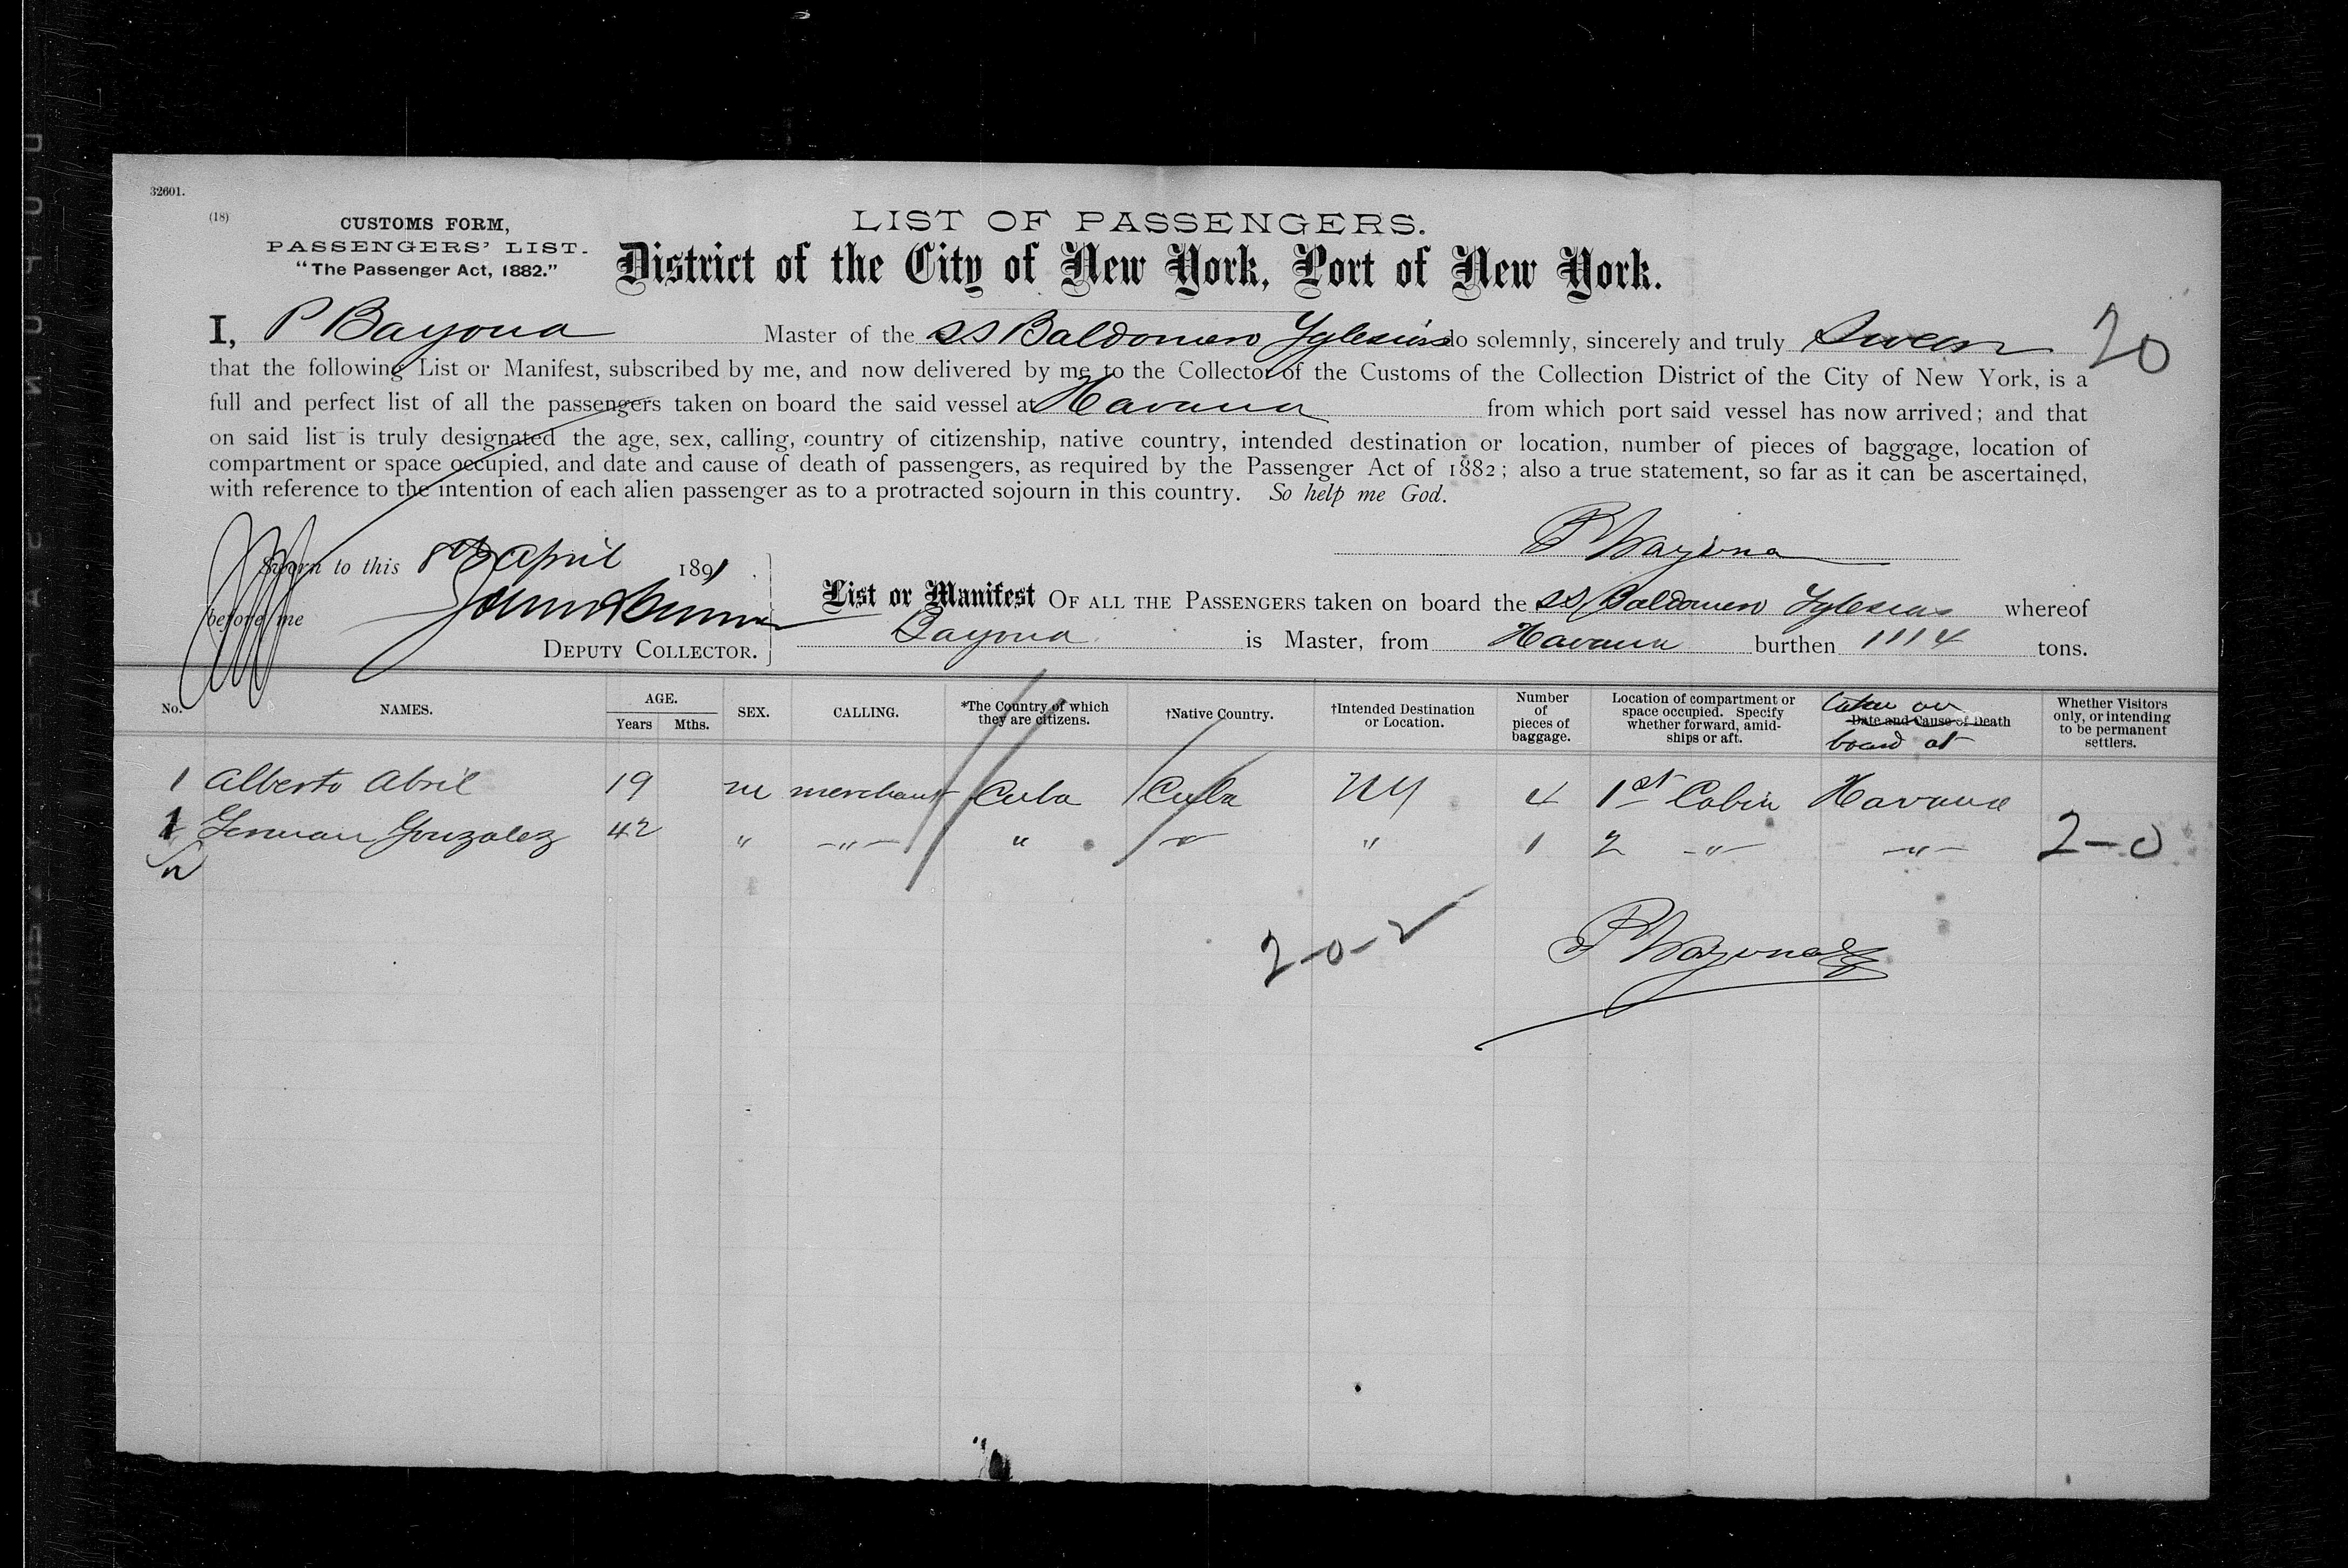 32601.
(18)
CUSTOMS FORM,
PASSENGERS' LIST.
"The Passenger Act, 1882."
LIST OF PASSENGERS.
District of the City of New York, Port of New York.
I, P Bayona Master of the SS Baldomero Yglesias do solemnly, sincerely and truly Swear
20
that the following List or Manifest, subscribed by me, and now delivered by me to the Collector of the Customs of the Collection District of the City of New York, is a
full and perfect list of all the passengers taken on board the said vessel at Havana from which port said vessel has now arrived; and that
on said list is truly designated the age, sex, calling, country of citizenship, native country, intended destination or location, number of pieces of baggage, location of
compartment or space occupied, and date and cause of death of passengers, as required by the Passenger Act of 1882; also a true statement, so far as it can be ascertained,
with reference to the intention of each alien passenger as to a protracted sojourn in this country. So help me God.
P Bayona
Sworn to this 8th April 1891
before me
DEPUTY COLLECTOR.
List or Manifest OF ALL THE PASSENGERS taken on board the SS Baldomero Yglesias whereof
Bayona is Master, from Havana burthen 1114 tons.
No. NAMES. AGE. Years Mths. SEX. CALLING. *The Country of which they are citizens. †Native Country. †Intended Destination or Location. Number of pieces of baggage. Location of compartment or space occupied. Specify whether forward, amidships or aft. Date and Cause of Death taken on board at Whether Visitors only, or intending to be permanent settlers.
1 Alberto Abril 19 m merchant Cuba Cuba NY 4 1st Cabin Havana
German Gonzalez 42 " -"- " " " 1 2 -"- -"- 2-0
2-0-2
P Bayona